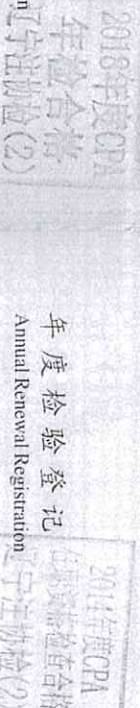 2018年度CPA
年检合格
辽宁注协检(2)
年度检验登记
Annual Renewal Registration
2014年度CPA
任职资格检查合格
辽宁注协检(2)
n